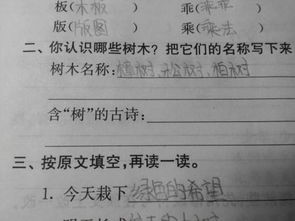 板(木板) 乘(乘乘)
版(版图) 乘(乘法)
二、你认识哪些树木？把它们的名称写下来
树木名称：樟树，松树，柏树
含“树”的古诗：
三、按原文填空，再读一读。
1. 今天栽下绿色的希望